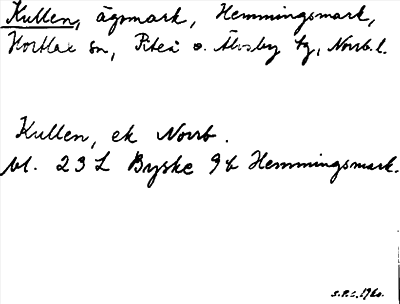 Kullen, ägsmark, Hemmingsmark,
Hortlax sn, Piteå o. Älvsby tg, Norrb. l.
Kullen, ek Norrb.
bl. 23 L Byske 9 b Hemmingsmark.
S.P.S. 1960.